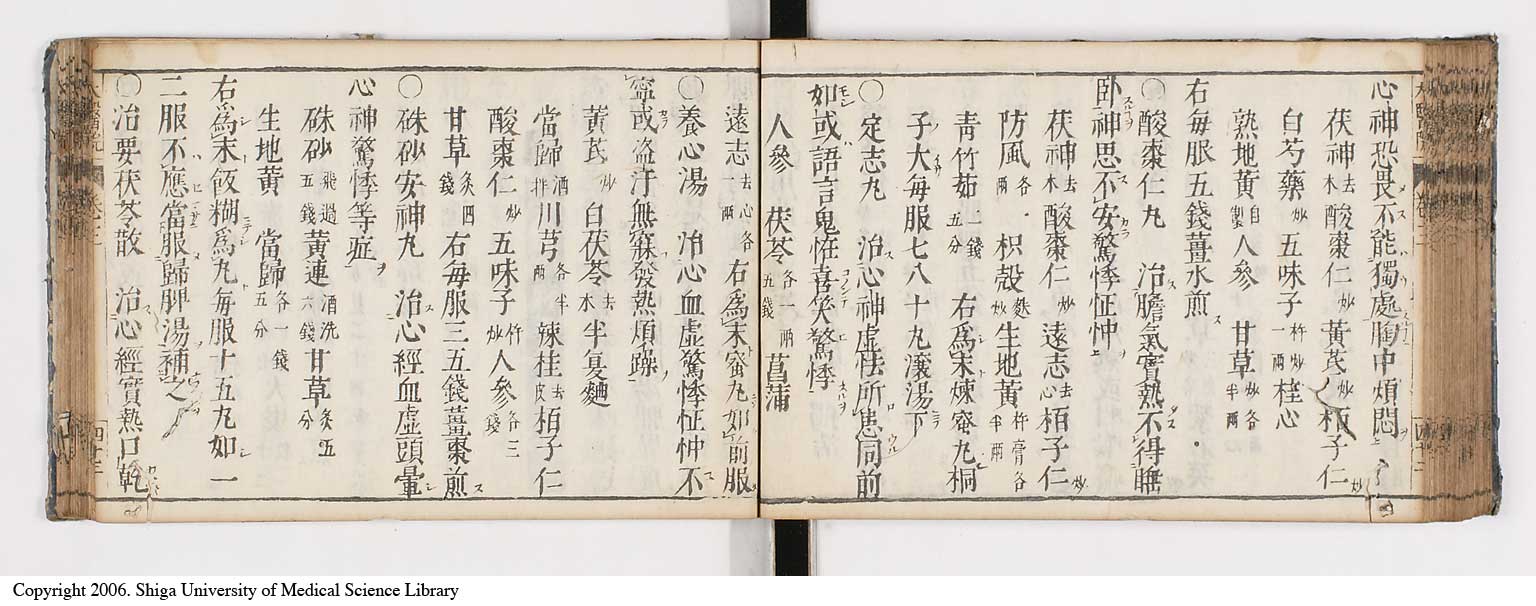 心神恐畏不能獨處胸中煩悶
茯神去木酸棗仁炒黃芪炒栢子仁炒
白芍藥炒五味子杵炒一兩桂心
熟地黃自製人參甘草炒各半兩
右每服五錢薑水煎
〇酸棗仁丸 治膽氣實熱不得睡
卧神思不安驚悸怔忡
茯神去木酸棗仁炒遠志去心栢子仁炒
防風各兩枳殼麩炒生地黃杵膏各半兩
靑竹茹二錢五分右爲末煉蜜丸桐
子大每服七八十丸滾湯下
〇定志丸 治心神虛怯所患同前
如或語言鬼怪喜笑驚悸
人參 茯苓各一兩五錢菖蒲
遠志去心各一兩右爲末蜜丸如前服
〇養心湯 治心血虛驚悸怔忡不
寧或盜汗無寐發熱煩躁
黃芪炒白茯苓去木半夏麯
當歸酒拌川芎各半兩辣桂去皮栢子仁
酸棗仁炒五味子杵炒人參各三錢
甘草炙四錢右每服三五錢薑棗煎
〇硃砂安神丸 治心經血虛頭暈
心神驚悸等症
硃砂飛過五錢黃連酒洗六錢甘草炙五分
生地黃 當歸各一錢五分
右爲末飯糊爲丸每服十五丸如一
二服不應當服歸脾湯補之
〇治要茯苓散 治心經實熱口乾
Copyright 2006. Shiga University of Medical Science Library